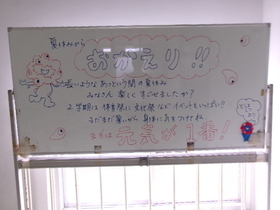 夏休みから
おかえり!!
長いようなあっという間の夏休み
みなさん楽しくすごせましたか?
2学期は体育祭に文化祭などイベントもいっぱい!!
まだまだ暑いから身体に気をつけてね
まずは元気が1番!